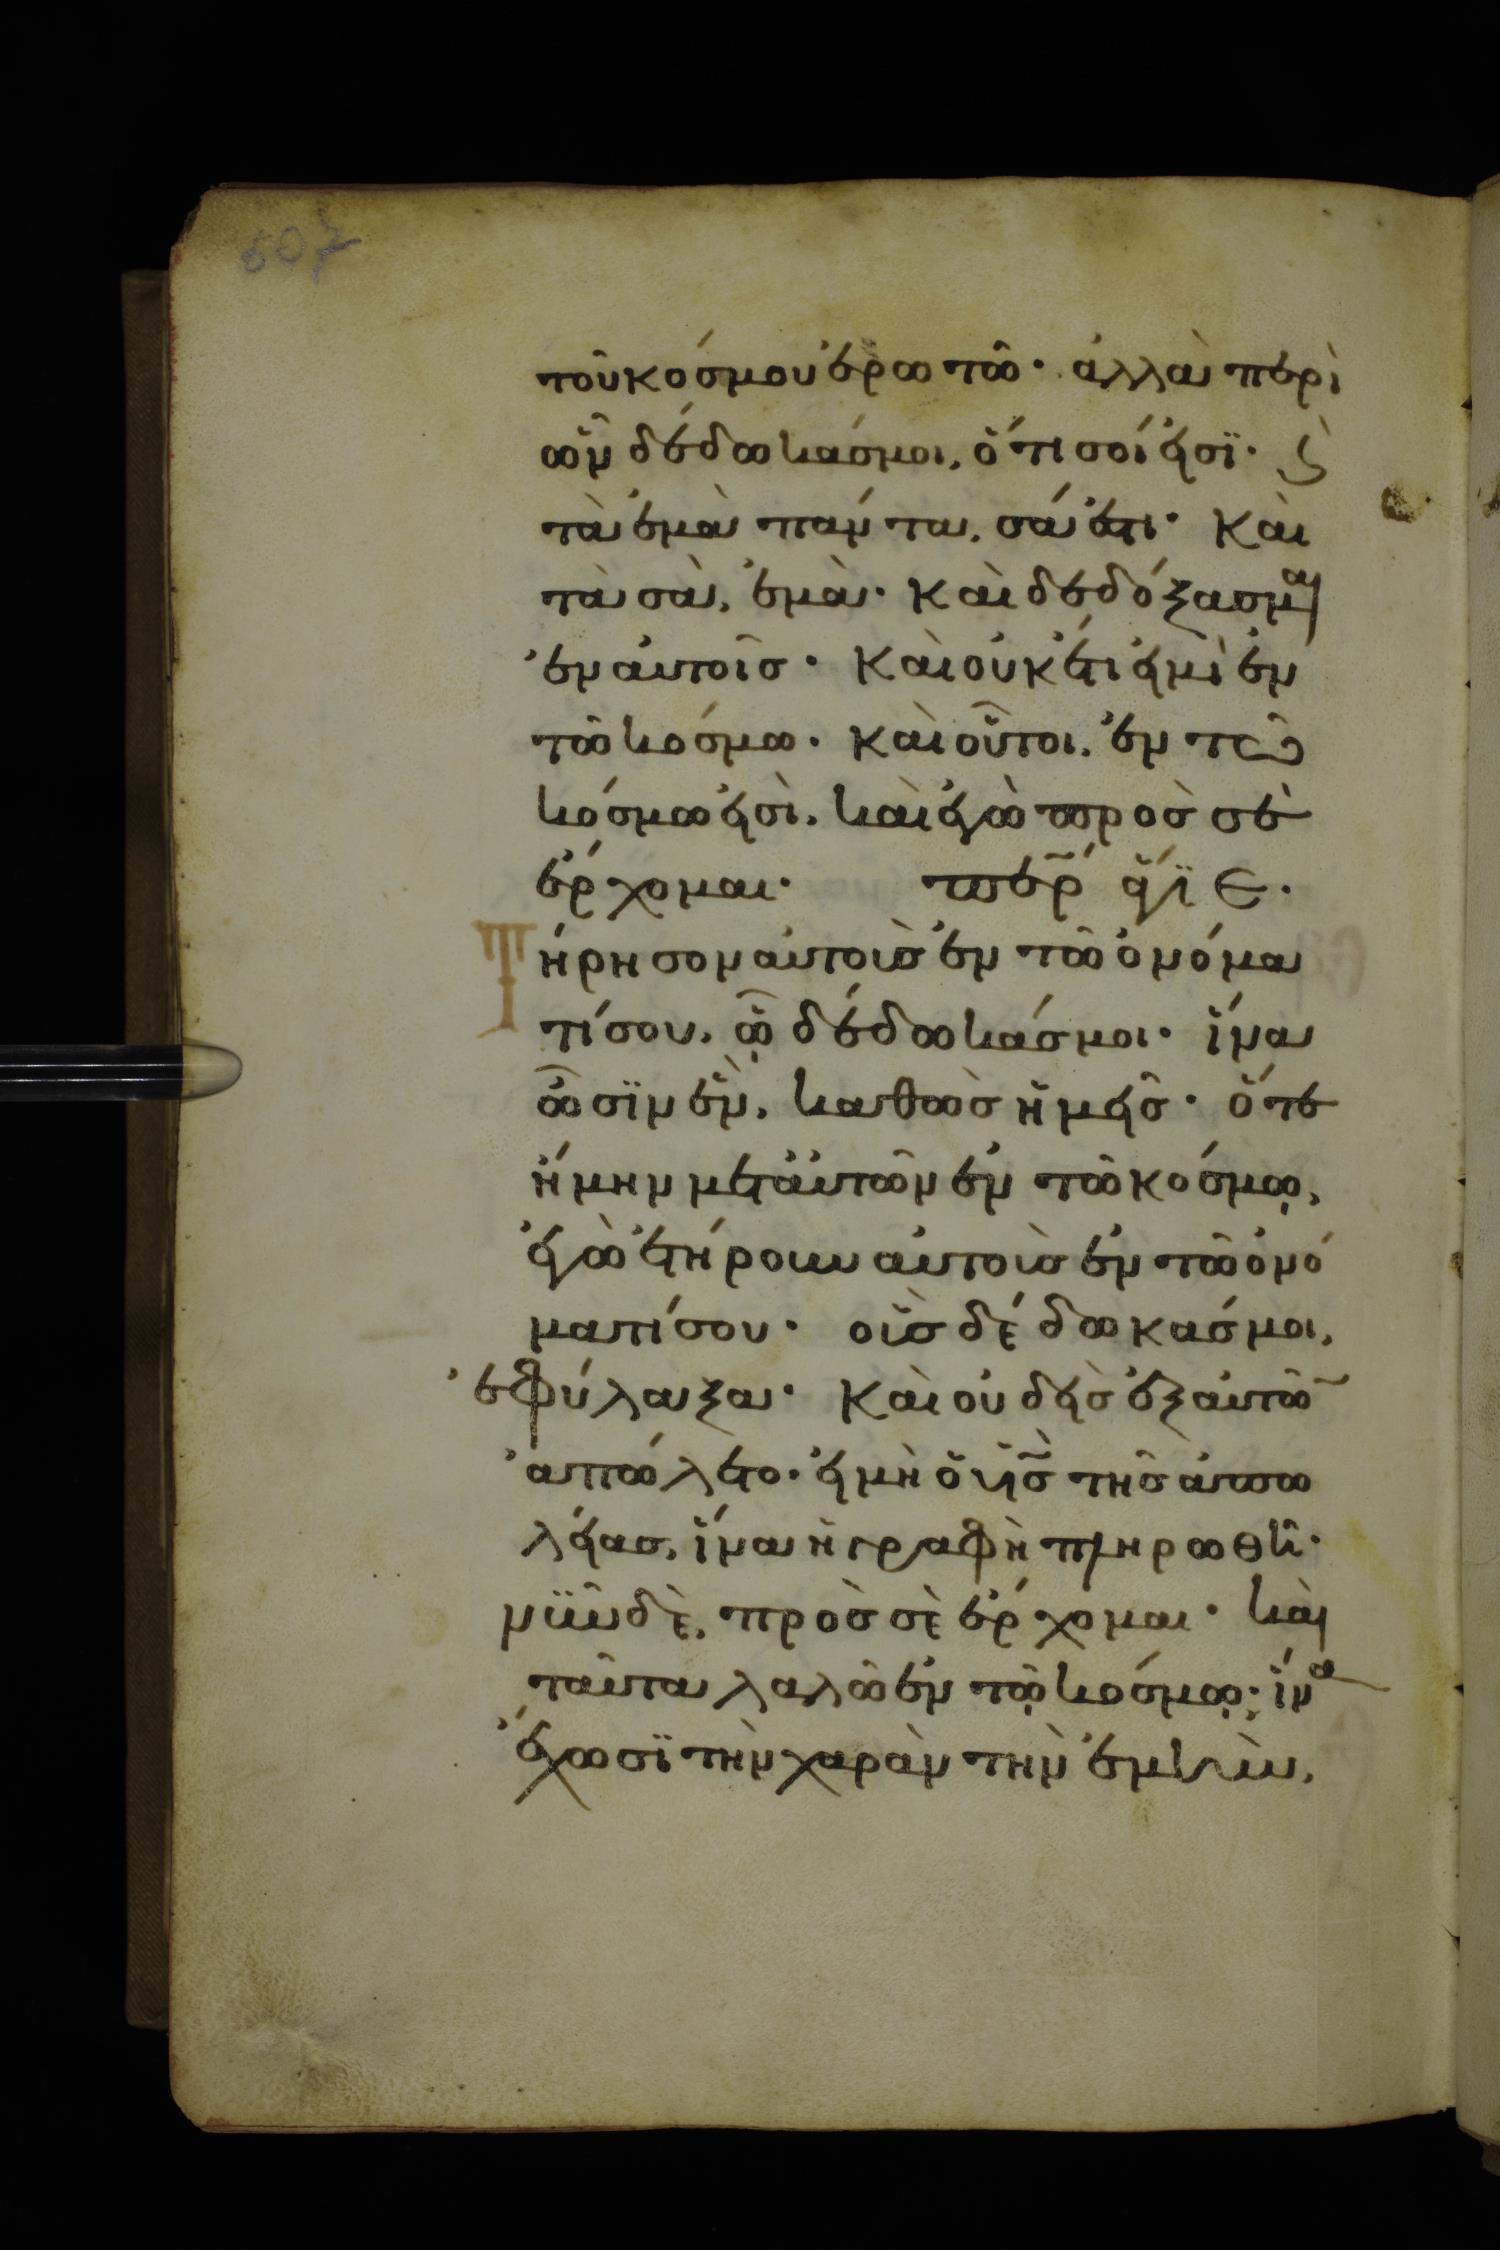 507
τοῦ κόσμου ἐρωτῶ· ἀλλὰ περὶ
ὧν δέδωκάς μοι, ὅτι σοί εἰσϊ· ϗ
τὰ ἐμὰ πάντα, σά ἐστι· καὶ
τὰ σὰ, ἐμὰ· καὶ δεδόξασμαι
ἐν αὐτοῖς· καὶ οὐκέτι εἰμὶ ἐν
τῶ κόσμω· καὶ οὗτοι, ἐν τῶ
κόσμω εἰσὶ, καὶ ἐγὼ πρὸς σὲ
ἔρχομαι·
Τήρησον αὐτοὺς ἐν τῶ ὀνόμα
τί σου, ᾧ δέδωκάς μοι· ἵνα
ὦσϊν ἓν, καθὼς ἡμεῖς· ὅτε
ἤμην μετ' αὐτῶν ἐν τῶ κόσμῳ,
ἐγὼ ἐτήρουν αὐτοὺς ἐν τῶ ὀνό
ματί σου· οὓς δέδωκάς μοι,
ἐφύλαξα· καὶ οὐδεὶς ἐξ αὐτῶ
ἀπώλετο· εἰ μὴ ὁ υἱ̅ς̅ τῆς ἀπω
λείας, ἵνα ἡ γραφὴ πληρωθῆ·
νϋν δὲ, πρὸς σὲ ἔρχομαι· καὶ
ταῦτα λαλῶ ἐν τῷ κόσμῳ· ἵνα
ἔχωσϊ τὴν χαρὰν τὴν ἐμὴν,